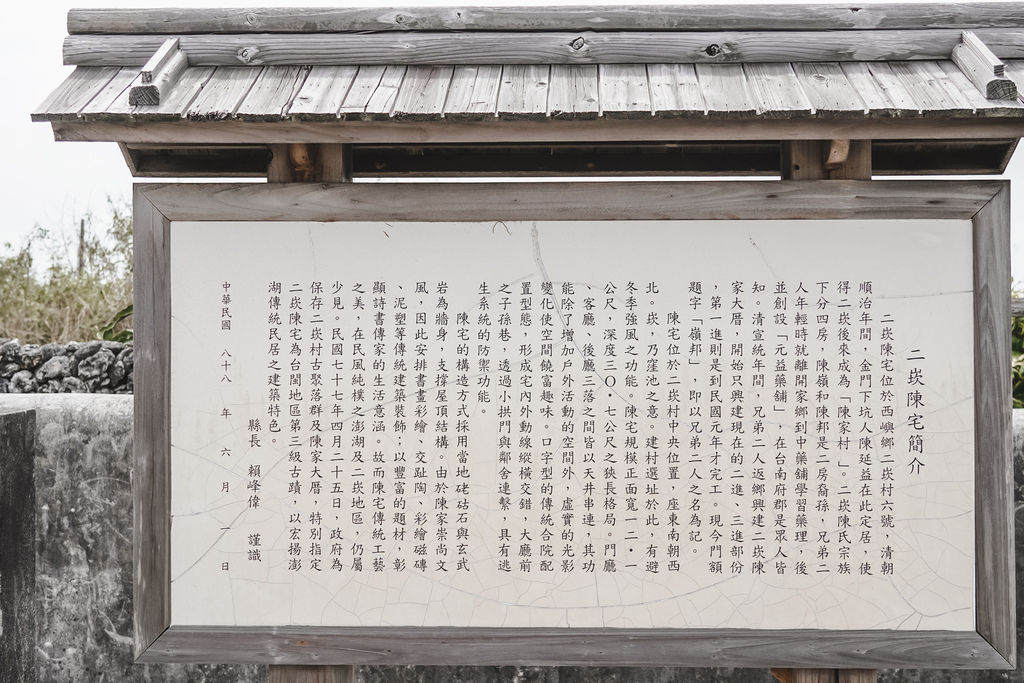 二崁陳宅簡介
二崁陳宅位於西嶼鄉二崁村六號，清朝
順治年間，金門下坑人陳延益在此定居，使
得二崁後來成為「陳家村」。二崁陳氏宗族
下分四房，陳嶺和陳邦是二房裔孫，兄弟二
人年輕時就離開家鄉到中藥舖學習藥理，後
並創設「元益藥舖」，在台南府郡是眾人皆
知。清宣統年間，兄弟二人返鄉興建二崁陳
家大厝，開始只興建現在的二進、三進部份
，第一進則是到民國元年才完工。現今門額
題字「嶺邦」，即以兄弟二人之名為記。
陳宅位於二崁村中央位置，座東南朝西
北。崁，乃窪池之意。建村選址於此，有避
冬季強風之功能。陳宅規模正面寬一二·一
公尺，深度三○·七公尺之狹長格局。門廳
、客廳、後廳三落之間皆以天井串連，其功
能除了增加戶外活動的空間外，虛實的光影
變化使空間饒富趣味。口字型的傳統合院配
置型態，形成宅內外動線縱橫交錯，大廳前
之子孫巷，透過小拱門與鄰舍連繫，具有逃
生系統的防禦功能。
陳宅的構造方式採用當地硓𥑮石與玄武
岩為牆身，支撐屋頂結構。由於陳家崇尚文
風，因此安排書畫彩繪、交趾陶、彩繪磁磚
、泥塑等傳統建築裝飾；以豐富的題材，彰
顯詩書傳家的生活意涵。故而陳宅傳統工藝
之美，在民風純樸之澎湖及二崁地區，仍屬
少見。民國七十七年四月二十五日，政府為
保存二崁村古聚落群及陳家大厝，特別指定
二崁陳宅為台閩地區第三級古蹟，以宏揚澎
湖傳統民居之建築特色。
縣長 賴峰偉 謹識
中華民國 八十八 年 六 月 一 日